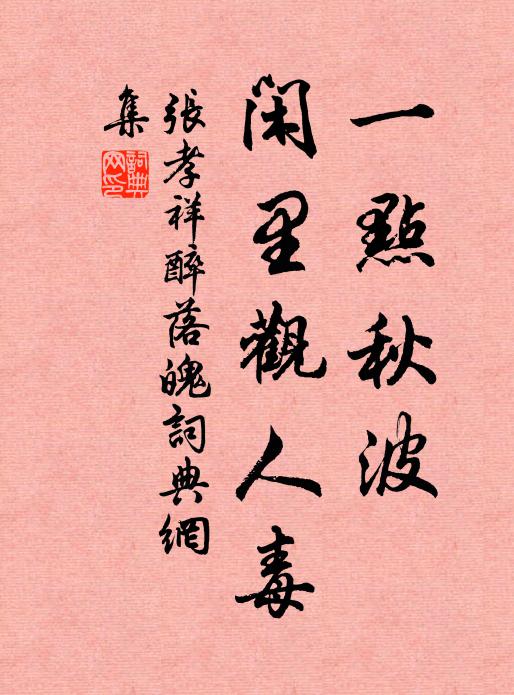 一點秋波
閑里觀人毒
張孝祥醉落魄詞典網
集
詞典
网印